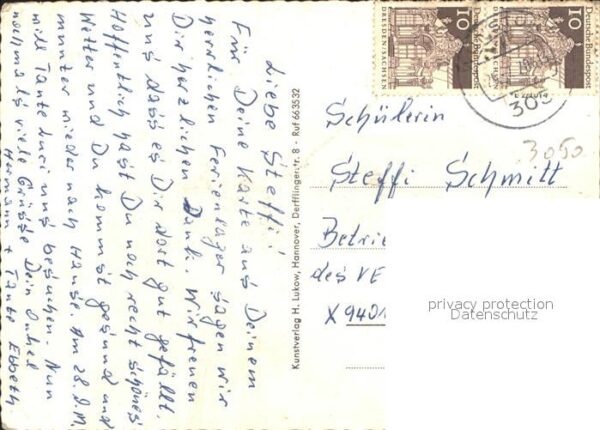 Liebe Steffi!
Für Deine Karte aus Deinem
herrlichen Ferienlager sagen wir
Dir herzlichen Dank. Wir freuen
uns dass es Dir dort gut gefällt.
Hoffentlich hast Du noch recht schönes
Wetter und Du kommst gesund und
munter wieder nach Hause. Am 28. d.M.
will Tante Luci uns besuchen. Nun
nochmals viele Grüsse Dein Onkel
Hermann + Tante Elsbeth
Kunstverlag H. Lukow, Hannover, Derfflingerstr. 8 - Ruf 663532
10 Deutsche Bundespost
DRESDEN/SACHSEN
10 Deutsche Bundespost
305
3050
Schülerin
Steffi Schmitt
Betrie
des VE
X 9401
privacy protection
Datenschutz